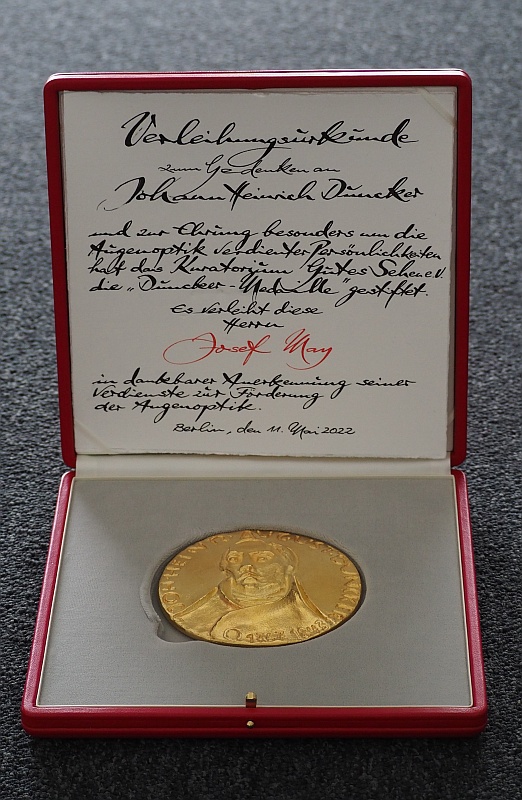 Verleihungsurkunde
zum Gedenken an
Johann Heinrich Duncker
und zur Ehrung besonders um die
Augenoptik verdienter Persönlichkeiten
hat das Kuratorium Gutes Sehen e.V.
die „Duncker-Medaille" gestiftet.
Es verleiht diese
Herrn
Josef May
in dankbarer Anerkennung seiner
Verdienste zur Förderung
der Augenoptik.
Berlin, den 11. Mai 2022